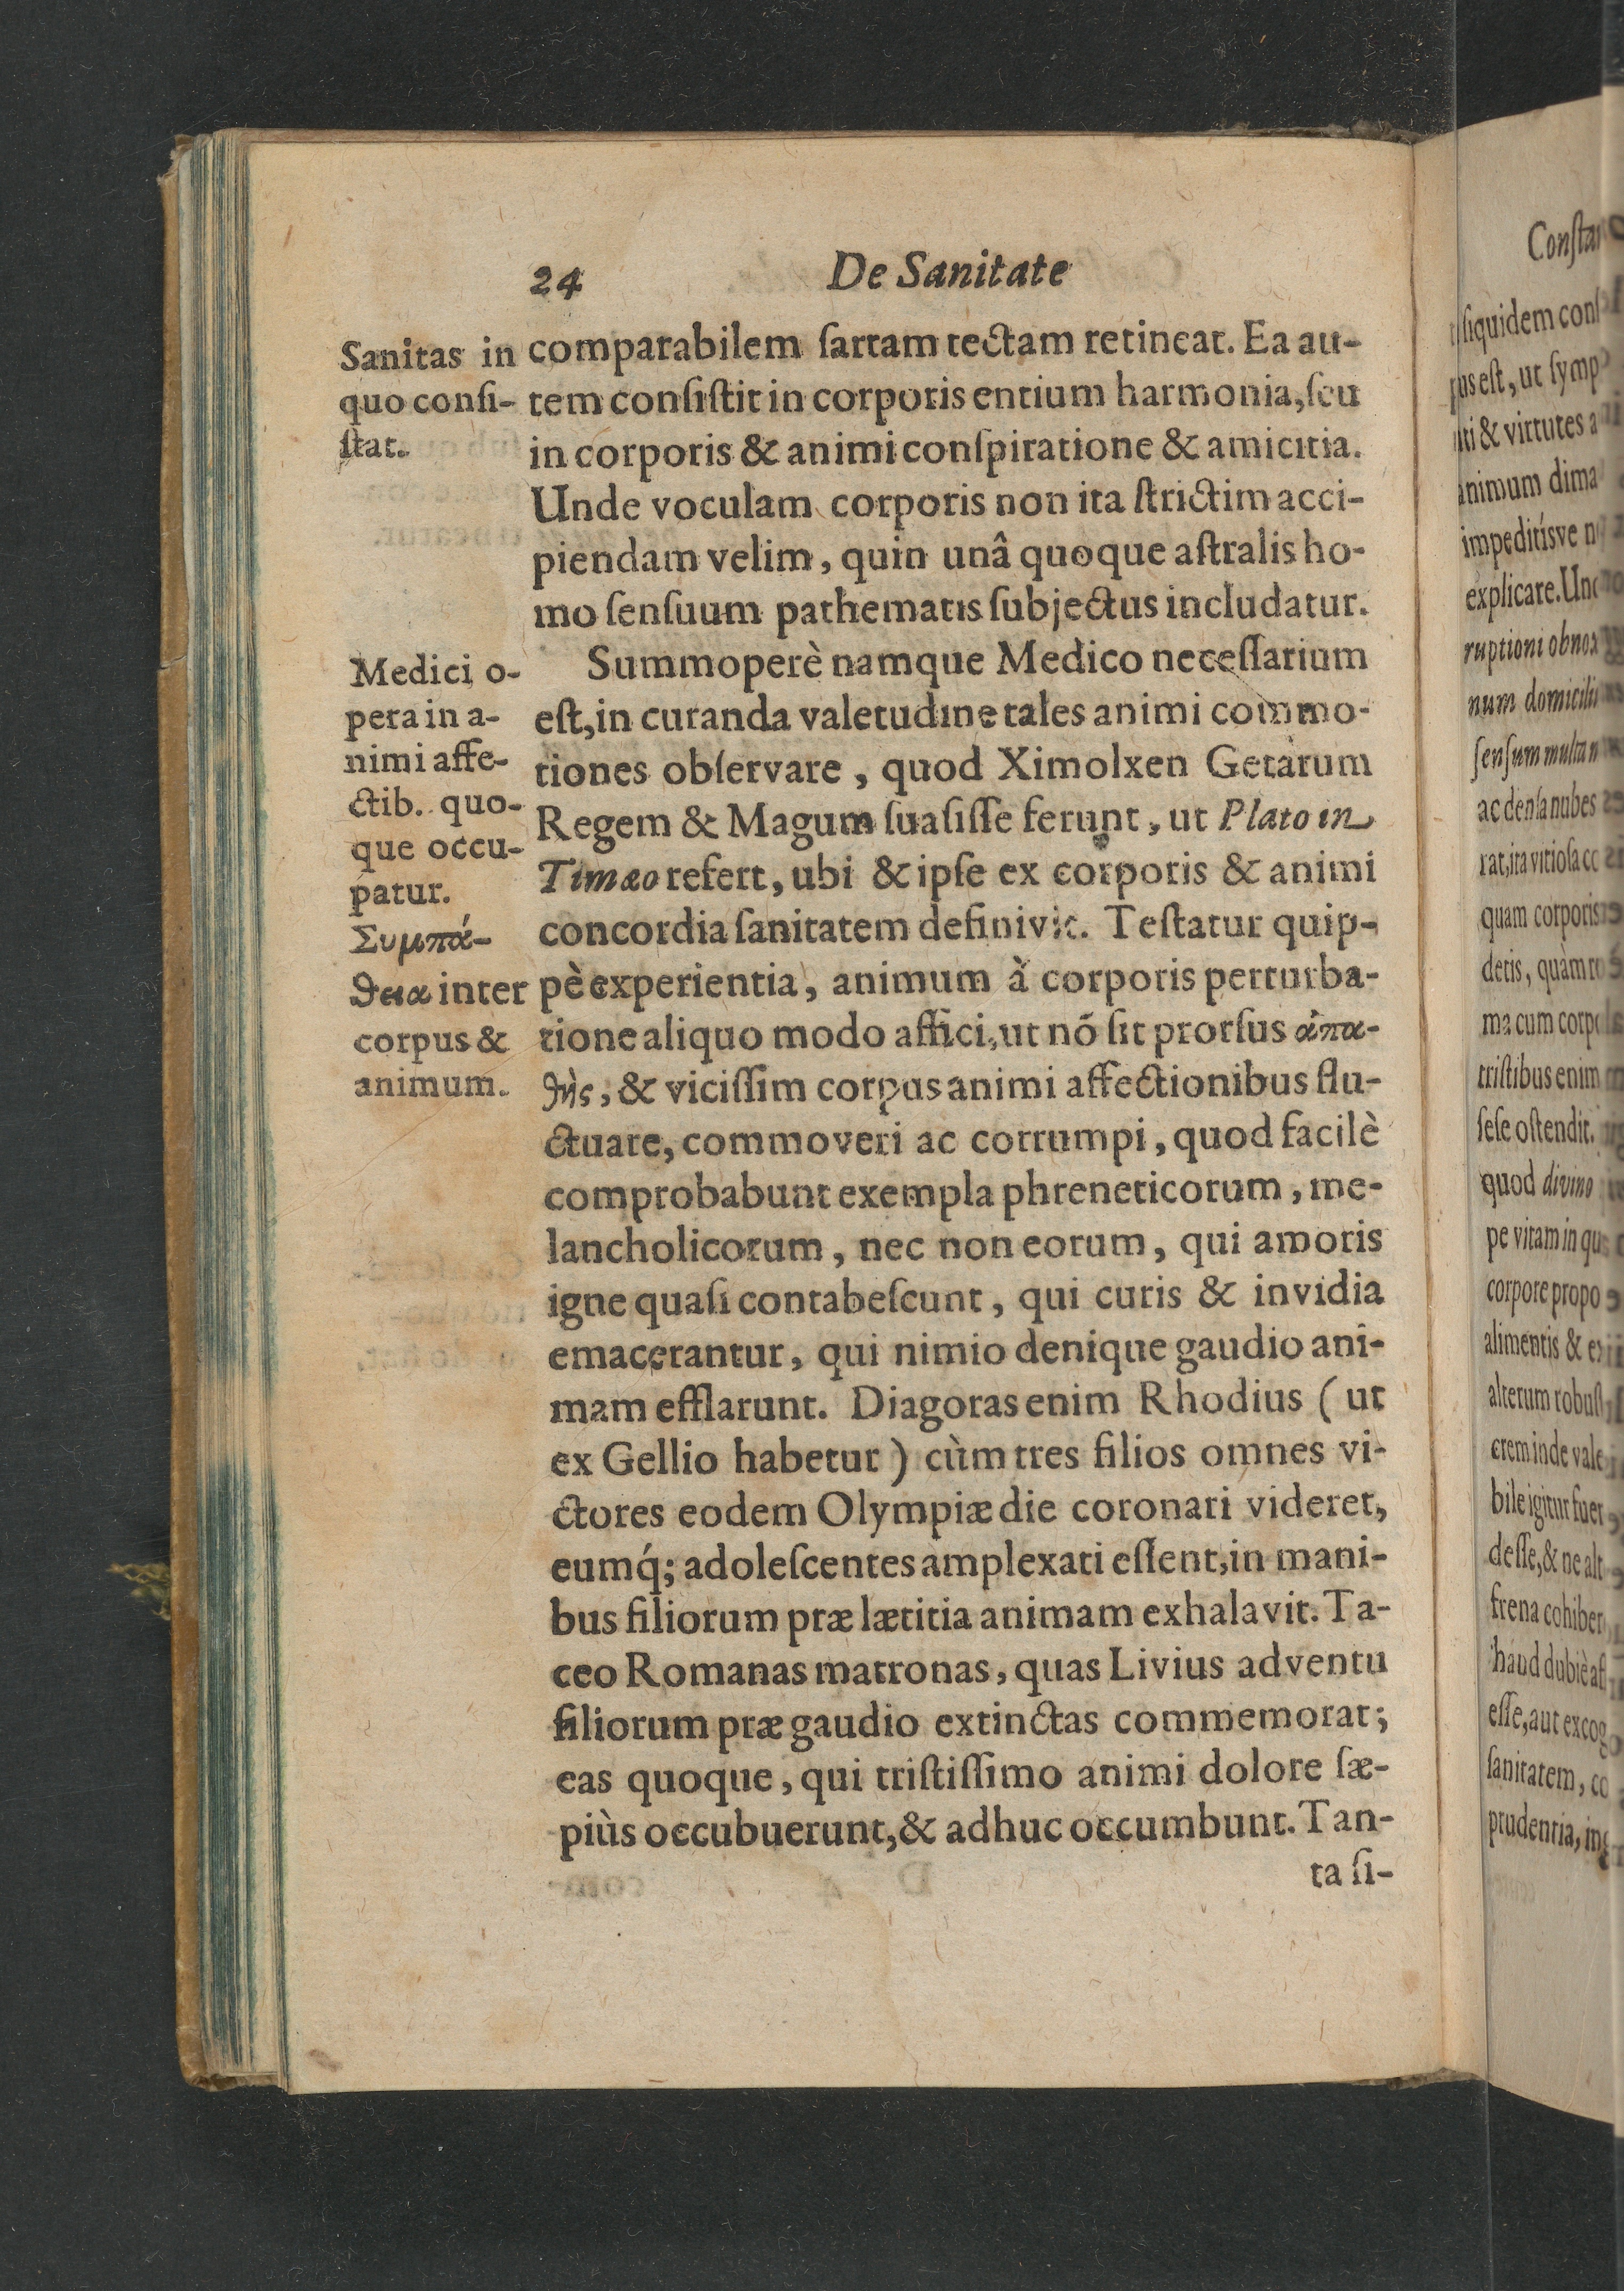 24 De Sanitate
Sanitas in
quo consi-
ſtat.
comparabilem ſartam tectam retineat. Ea au-
tem conſiſtit in corporis entium harmonia, ſeu
in corporis & animi conſpiratione & amicitia.
Unde voculam corporis non ita ſtrictim acci-
piendam velim, quin unâ quoque aſtralis ho-
mo ſenſuum pathematis ſubjectus includatur.
Medici o-
pera in a-
nimi affe-
ctib. quo-
que occu-
patur.
Συμπά-
θεια inter
corpus &
animum.
Summoperè namque Medico neceſſarium
eſt, in curanda valetudine tales animi commo-
tiones obſervare, quod Ximolxen Getarum
Regem & Magum ſuaſiſſe ferunt, ut Plato in
Timæo refert, ubi & ipſe ex corporis & animi
concordia ſanitatem definivit. Teſtatur quip-
pè experientia, animum à corporis perturba-
tione aliquo modo affici, ut nō ſit prorſus ἀπα-
θὴς, & viciſſim corpus animi affectionibus flu-
ctuare, commoveri ac corrumpi, quod facilè
comprobabunt exempla phreneticorum, me-
lancholicorum, nec non eorum, qui amoris
igne quaſi contabeſcunt, qui curis & invidia
emacerantur, qui nimio denique gaudio ani-
mam efflarunt. Diagoras enim Rhodius ( ut
ex Gellio habetur ) cùm tres filios omnes vi-
ctores eodem Olympiæ die coronari videret,
eumq́; adoleſcentes amplexati eſſent, in mani-
bus filiorum præ lætitia animam exhalavit. Ta-
ceo Romanas matronas, quas Livius adventu
filiorum præ gaudio extinctas commemorat;
eas quoque, qui triſtiſſimo animi dolore ſæ-
piùs occubuerunt, & adhuc occumbunt. Tan-
ta ſi-
ſiquidem
eſt, ut ſymp
& virtutes a
animum dima
impeditiſve
explicare. Und
ruptioni obnox
num domicilii
ſenſum multa
ac denſa nubes
rat, ita vitioſa
quam corporis
detis, quàm
ma cum corp
triſtibus enim
ſeſe oſtendit.
quod divino
pe vitam in qu
corpore propo
alimentis & ex
alterum robuſt
crem inde vale
bile igitur fuer
deſſe, & ne alt
frena cohiber
haud dubiè
eſſe, aut excog
ſanitatem, co
prudentia, ing